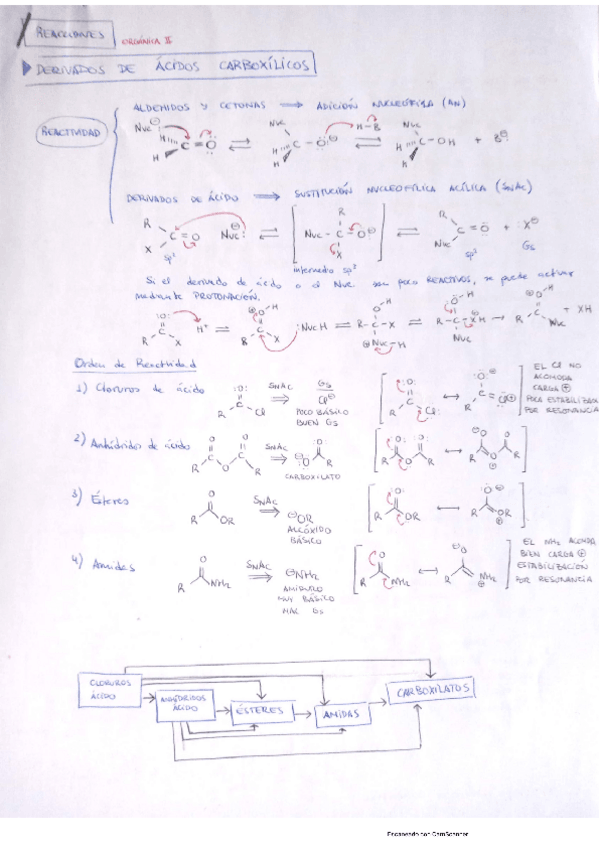 REACCIONES ORGÁNICA II
DERIVADOS DE ÁCIDOS CARBOXÍLICOS
ALDEHIDOS Y CETONAS ⟹ ADICIÓN NUCLEOFÍLICA (AN)
REACTIVIDAD
Nuc H H C=O ⇌ Nuc H H C-O H-B ⇌ Nuc H H C-OH + B⊖
DERIVADOS DE ÁCIDO ⟹ SUSTITUCIÓN NUCLEOFÍLICA ACÍLICA (SNAC)
R X C=O sp² Nuc: ⇌ [ Nuc-C-O⊖ R X ] ⇌ R Nuc C=O sp² + :X⊖ GS
intermedio
Si el derivado de ácido o el Nuc son poco REACTIVOS, se puede activar
mediante PROTONACIÓN.
R X C :O: H⁺ ⇌ R X C O-H :NucH ⇌ R-C-X O-H Nuc-H ⇌ R-C-XH O-H Nuc → R C O-H Nuc + XH
Orden de Reactividad
1) Cloruros de ácido R Cl SNAC ⟹ GS Cl⊖ POCO BÁSICO BUEN GS
EL Cl NO
ACOMODA
CARGA ⊕
POCA ESTABILIZA
POR RESONANCIA
2) Anhídrido de ácido R O O O R SNAC ⟹ ⊖O O R
CARBOXILATO
3) Ésteres R O OR SNAC ⟹ ⊖OR
ALCÓXIDO
BÁSICO
4) Amidas R O NH₂ SNAC ⟹ ⊖NH₂
AMIDURO
MUY BÁSICO
MAL GS
EL NH₂ ACOMODA
BIEN CARGA ⊕
ESTABILIZACIÓN
POR RESONANCIA
CLORUROS
ÁCIDO
ANHÍDRIDOS
ÁCIDO
ÉSTERES
AMIDAS
CARBOXILATOS
Escaneado con CamScanner